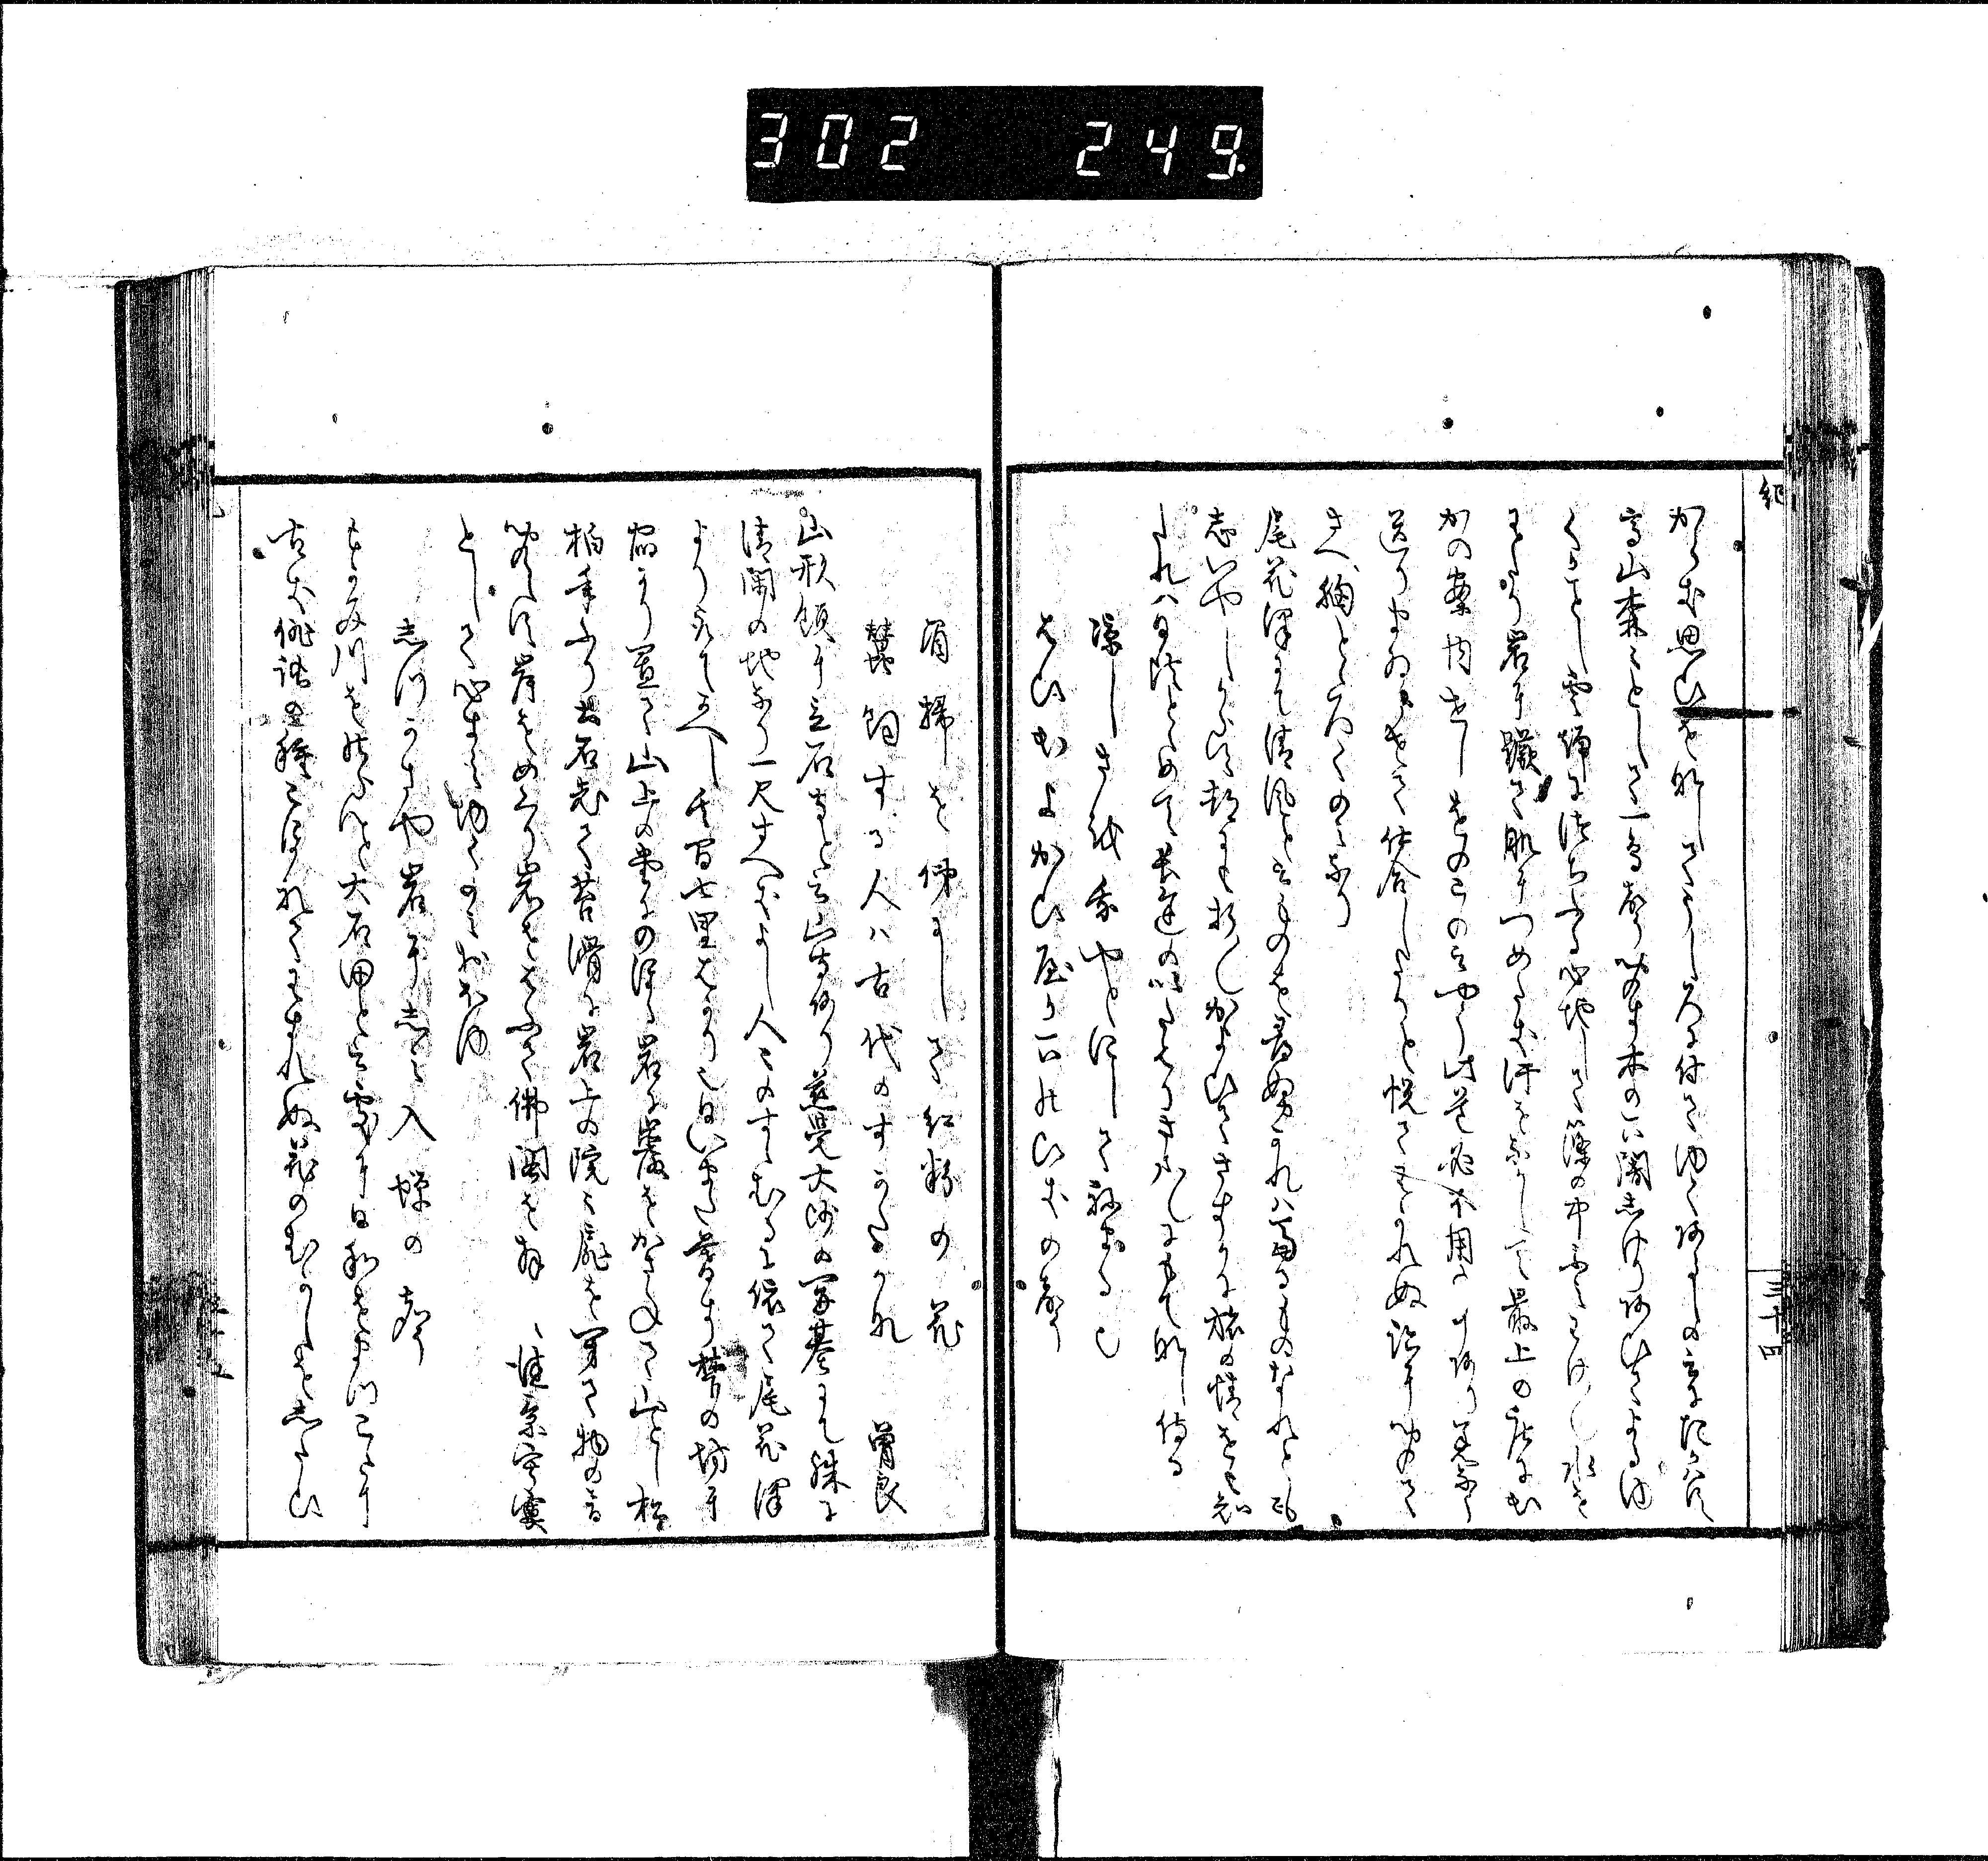 紀
三十四
からき思ひを那してうしろに付てゆくあるしの云にたかはす
高山森々として一鳥声聞す木の下闇しけりあひてよるゆ
くことし雲端に津ちふる心地して篠の中ふミわけ〱水を
わたり岩に蹶て肌につめたき汗をなかして最上の庄に出
かの案内せしをのこの云やう此道必不用の事あり恙なう
送りまゐらせて仕合したりと悦てわかれぬ跡に聞て
さへ胸とゝろくのみなり
尾花澤にて清風と云ものを尋ぬかれハ富るものなれとも
志いやしからす都にも折〱かよひてさすかに旅の情をも知
たれハ日比とゝめて長途のいたはりさま〱にもて那し侍る
涼しさを我やとにしてねまる也
はひ出よかひ屋か下のひきの声
眉掃を俤にして紅粉の花
蠶飼する人ハ古代のすかたかな　曽良
山形領に立石寺と云山寺あり慈覚大師の開基にて殊に
清閑の地なり一見すへきよし人々のすゝむるに依て尾花澤
よりとつて返し其間七里はかり也日いまた暮す梺の坊に
宿かり置て山上の堂にのほる岩に巌をかさねて山とし松
栢年ふり土石老て苔滑に岩上の院々扉を閉て物の音
聞えす岸をめくり岩をはふて佛閣を拝し佳景寂寞
としてこゝろすミ行のミおほゆ
志つかさや岩にしミ入蝉の声
もかミ川をのらんと大石田と云処に日和をまつこゝに
古き俳諧の種こほれてわすれぬ花のむかしをしたひ